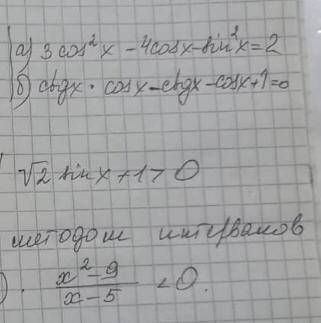 а) 3cos²x - 4cosx - sin²x = 2
б) ctgx · cosx - ctgx - cosx + 1 = 0
√2 sinx + 1 > 0
методом интервалов
) . x² - 9 / x - 5 < 0.